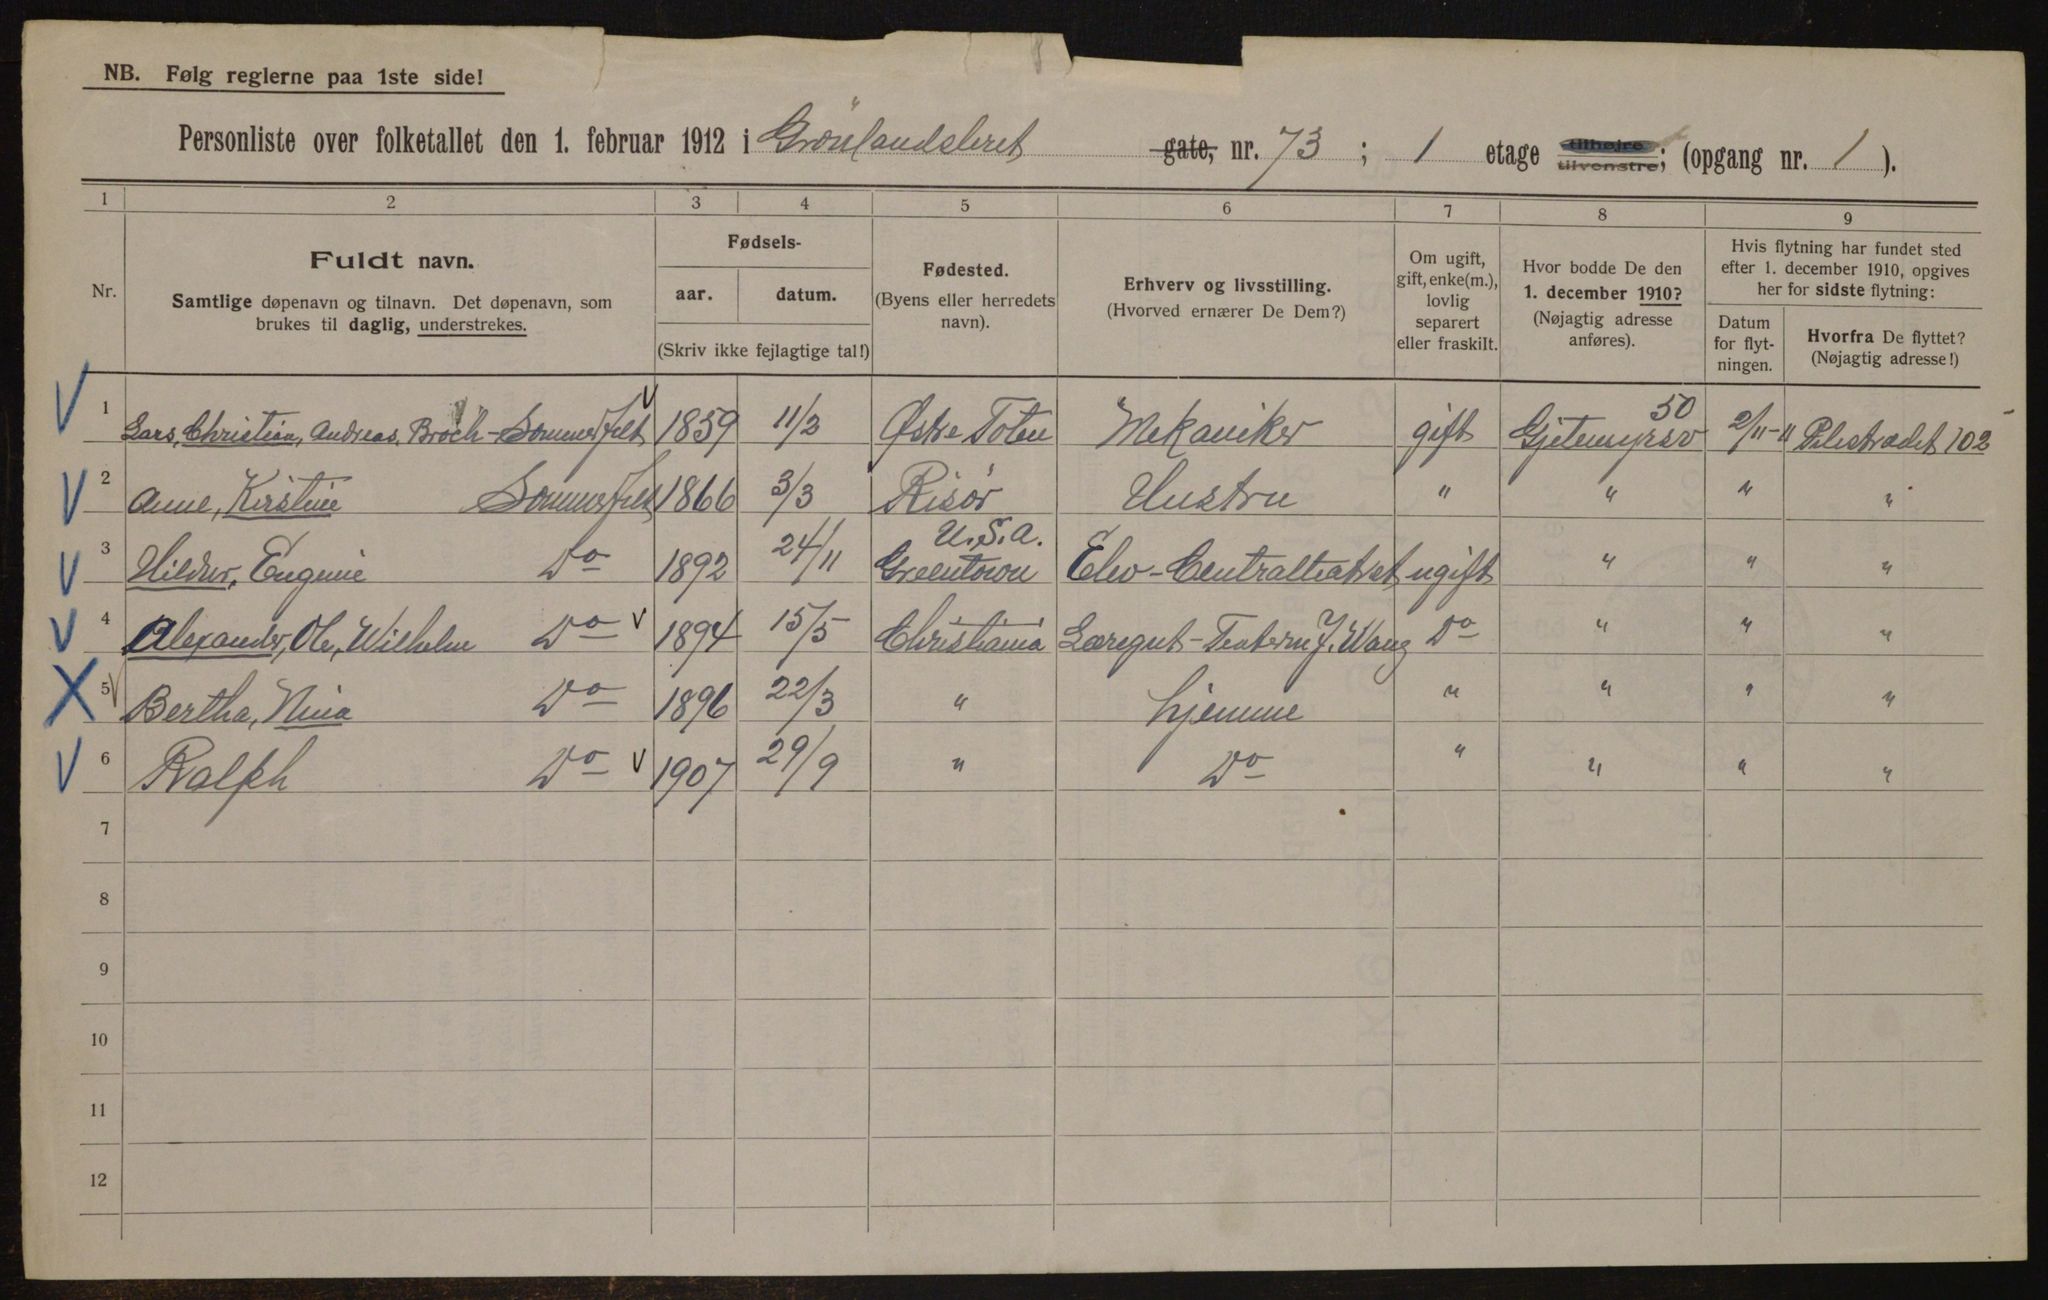 NB. Følg reglerne paa 1ste side!
Personliste over folketallet den 1. februar 1912 i Grønlandsleret gate, nr. 73 ; 1 etage tilhøjre tilvenstre; (opgang nr. 1 ).
1 2 3 4 5 6 7 8 9
Nr.
Fuldt navn.
Samtlige døpenavn og tilnavn. Det døpenavn, som
brukes til daglig, understrekes.
Fødsels-
aar. datum.
(Skriv ikke fejlagtige tal!)
Fødested.
(Byens eller herredets
navn).
Erhverv og livsstilling.
(Hvorved ernærer De Dem?)
Om ugift,
gift, enke(m.),
lovlig
separert
eller fraskilt.
Hvor bodde De den
1. december 1910?
(Nøjagtig adresse
anføres).
Hvis flytning har fundet sted
efter 1. december 1910, opgives
her for sidste flytning:
Datum
for flyt-
ningen.
Hvorfra De flyttet?
(Nøjagtig adresse!)
1 Lars, Christian, Andreas, Broch-Sommerfelt 1859 11/3 Østre Toten Mekaniker gift Gjetemyrsv 50 2/11-11 Pilestrædet 102
2 Anne, Kirstine Sommerfelt 1866 3/3 Risør Hustru " " " "
3 Hildur, Eugenie Do 1892 24/11 U.S.A. Greentown Elev-Centralteatret ugift " " "
4 Alexander, Ole, Wilhelm Do 1894 15/5 Christiania Læregut-Teaterm J. Wang Do " " "
5 Bertha, Nina Do 1896 22/3 " hjemme " " " "
6 Ralph Do 1907 29/9 " Do " " " "
7
8
9
10
11
12